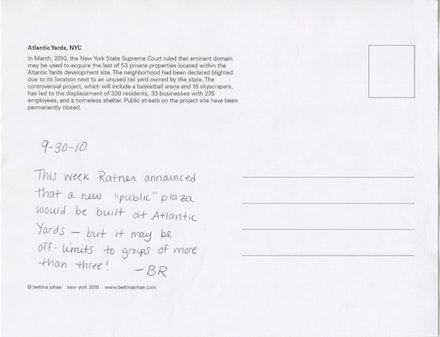 Atlantic Yards, NYC
In March, 2010, the New York State Supreme Court ruled that eminent domain
may be used to acquire the last of 53 private properties located within the
Atlantic Yards development site. The neighborhood had been declared blighted
due to its location next to an unused rail yard owned by the state. The
controversial project, which will include a basketball arena and 16 skyscrapers,
has led to the displacement of 330 residents, 33 businesses with 235
employees, and a homeless shelter. Public streets on the project site have been
permanently closed.
9-30-10
This week Ratner announced
that a new "public" plaza
would be built at Atlantic
Yards — but it may be
off-limits to groups of more
than three! —BR
© bettina johae new york 2010 www.bettinajohae.com